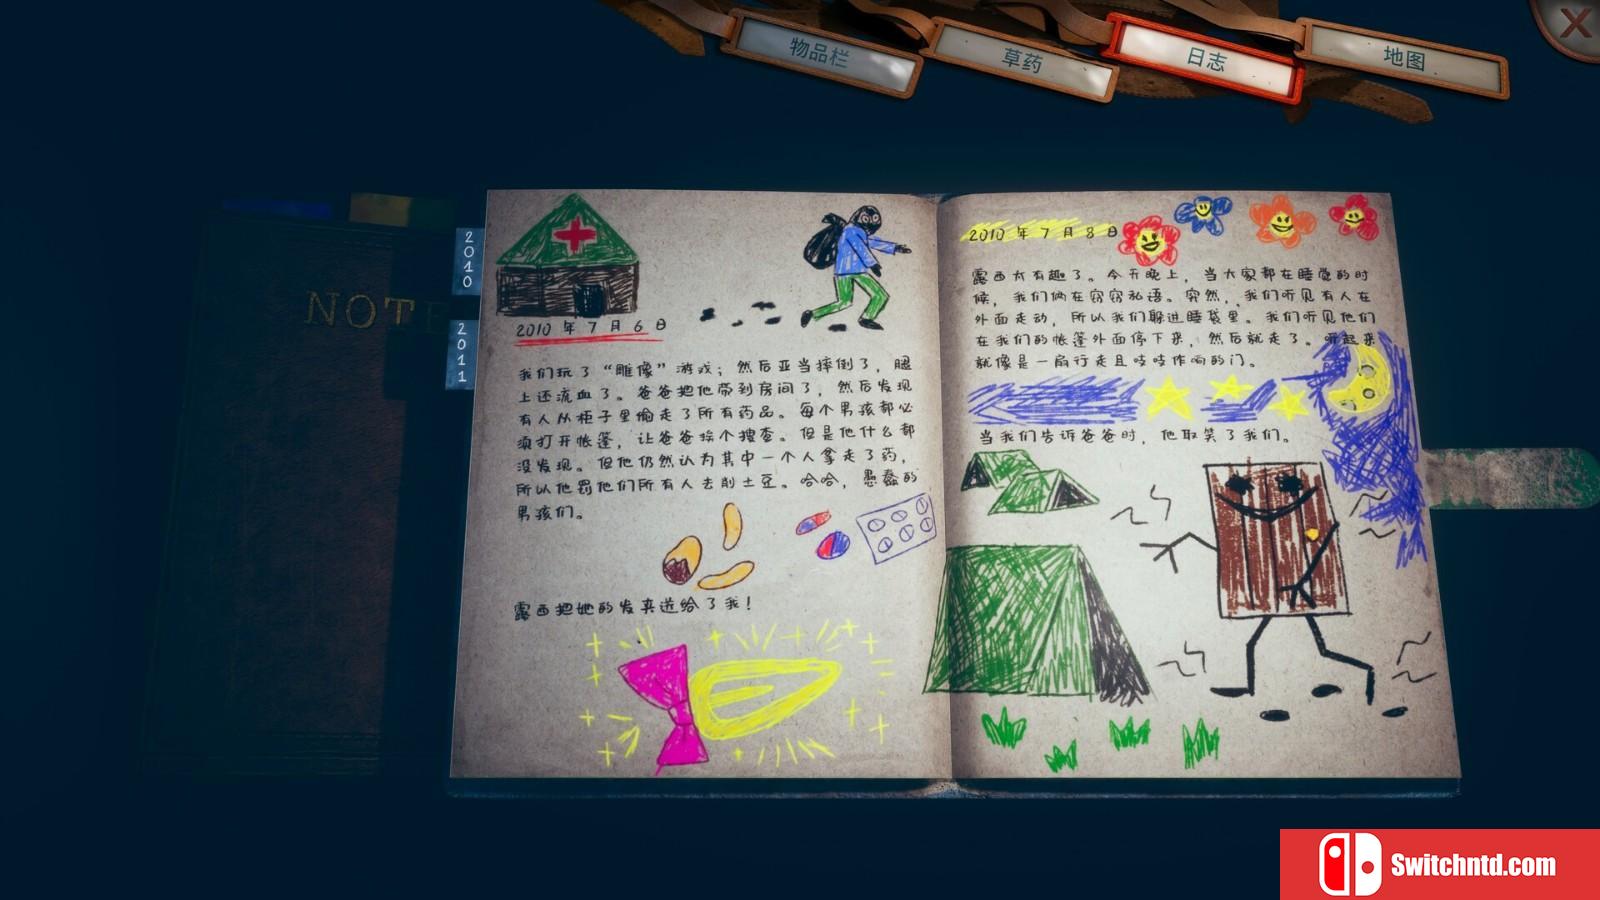 物品栏
草药
日志
地图
NOTE
2010
2011
2010年7月6日
我们玩了“雕像”游戏；然后亚当摔倒了，腿
上还流血了。爸爸把他带到房间了，然后发现
有人从柜子里偷走了所有药品。每个男孩都必
须打开帐篷，让爸爸挨个搜查。但是他什么都
没发现。但他仍然认为其中一个人拿走了药，
所以他罚他们所有人去削土豆。哈哈，愚蠢的
男孩们。
露西把她的发夹送给了我！
2010年7月8日
露西太有趣了。今天晚上，当大家都在睡觉的时
候，我们俩在窃窃私语。突然，我们听见有人在
外面走动，所以我们躲进睡袋里。我们听见他们
在我们的帐篷外面停下来，然后就走了。听起来
就像是一扇行走且吱吱作响的门。
当我们告诉爸爸时，他取笑了我们。
Switchntd.com